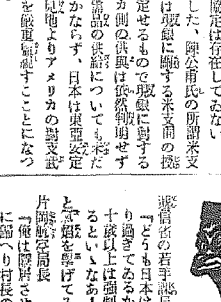 してゐない
した、陳公甫氏の所謂米支
は現銀に關する米支間の授
定せるもので現銀に對する
カ側の供與は依然判明せず
品の供給についても未だ
かならず、日本は東亞安定
見地よりアメリカの對支武
を嚴重監視することになつ
遞信省の若手課長
『どうも日本は
り過ぎてゐるか
十歳以上は强制
るといゝなあ』
と氣焰を擧げてゐ
片岡航空局長
『俺は隱居さ
に歸へり村長の